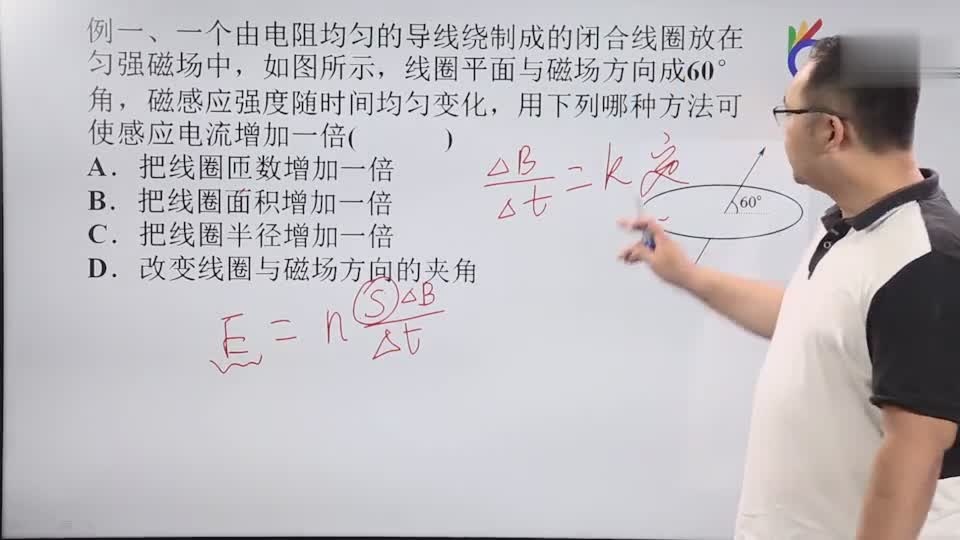 例一、一个由电阻均匀的导线绕制成的闭合线圈放在
匀强磁场中，如图所示，线圈平面与磁场方向成60°
角，磁感应强度随时间均匀变化，用下列哪种方法可
使感应电流增加一倍(　　)
A．把线圈匝数增加一倍
B．把线圈面积增加一倍
C．把线圈半径增加一倍
D．改变线圈与磁场方向的夹角
ΔB/Δt = k 定
60°
E = n SΔB/Δt